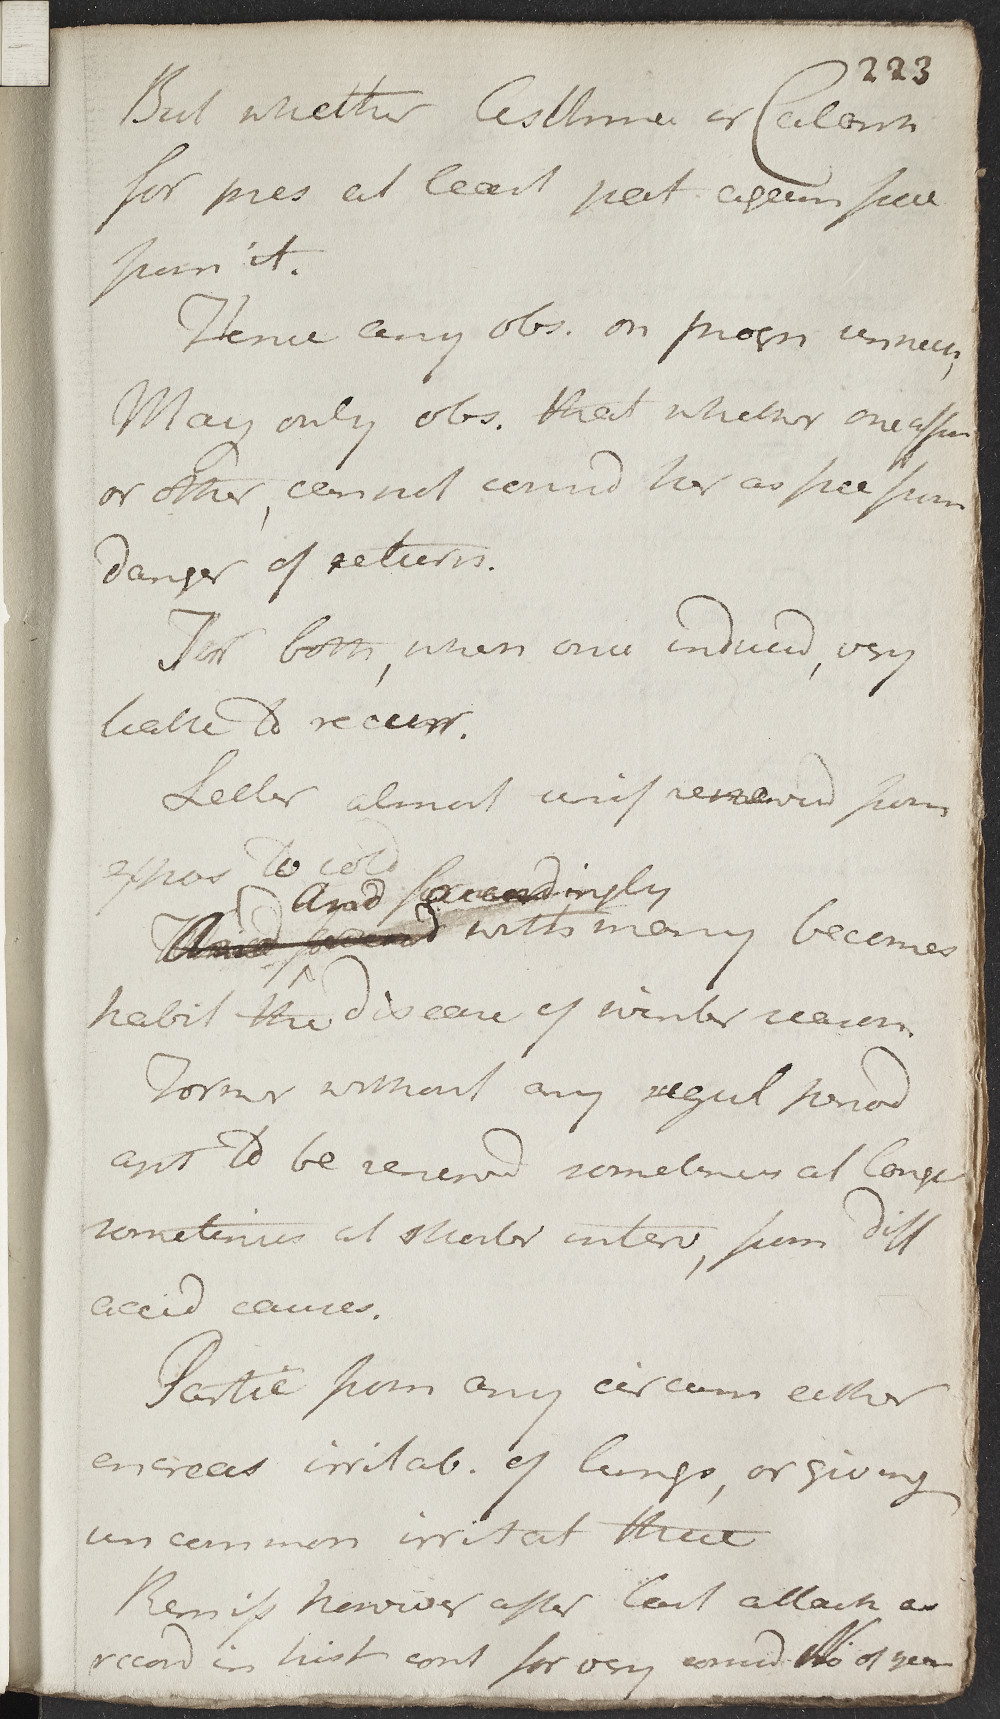 223
But whether Asthma or Catarrh
for pres at least pat again free
from it.
Hence any obs. on progn unnecs,
May only obs. that whether one affn
or other, cannot consid her as free from
danger of return.
For both, when once induced, very
liable to recurr.
Latter almost unif renewed from
expos to cold
And accordingly
with many becomes
habit the disease of winter season
Former without any regul period
apt to be renewd sometimes at longer
sometimes at shorter interv, from diff
accid causes.
Partic from any circum either
encreas irritab. of lungs, or giving
uncommon irritat there
Remiss however after last attack as
record in hist cont for very consid No of years